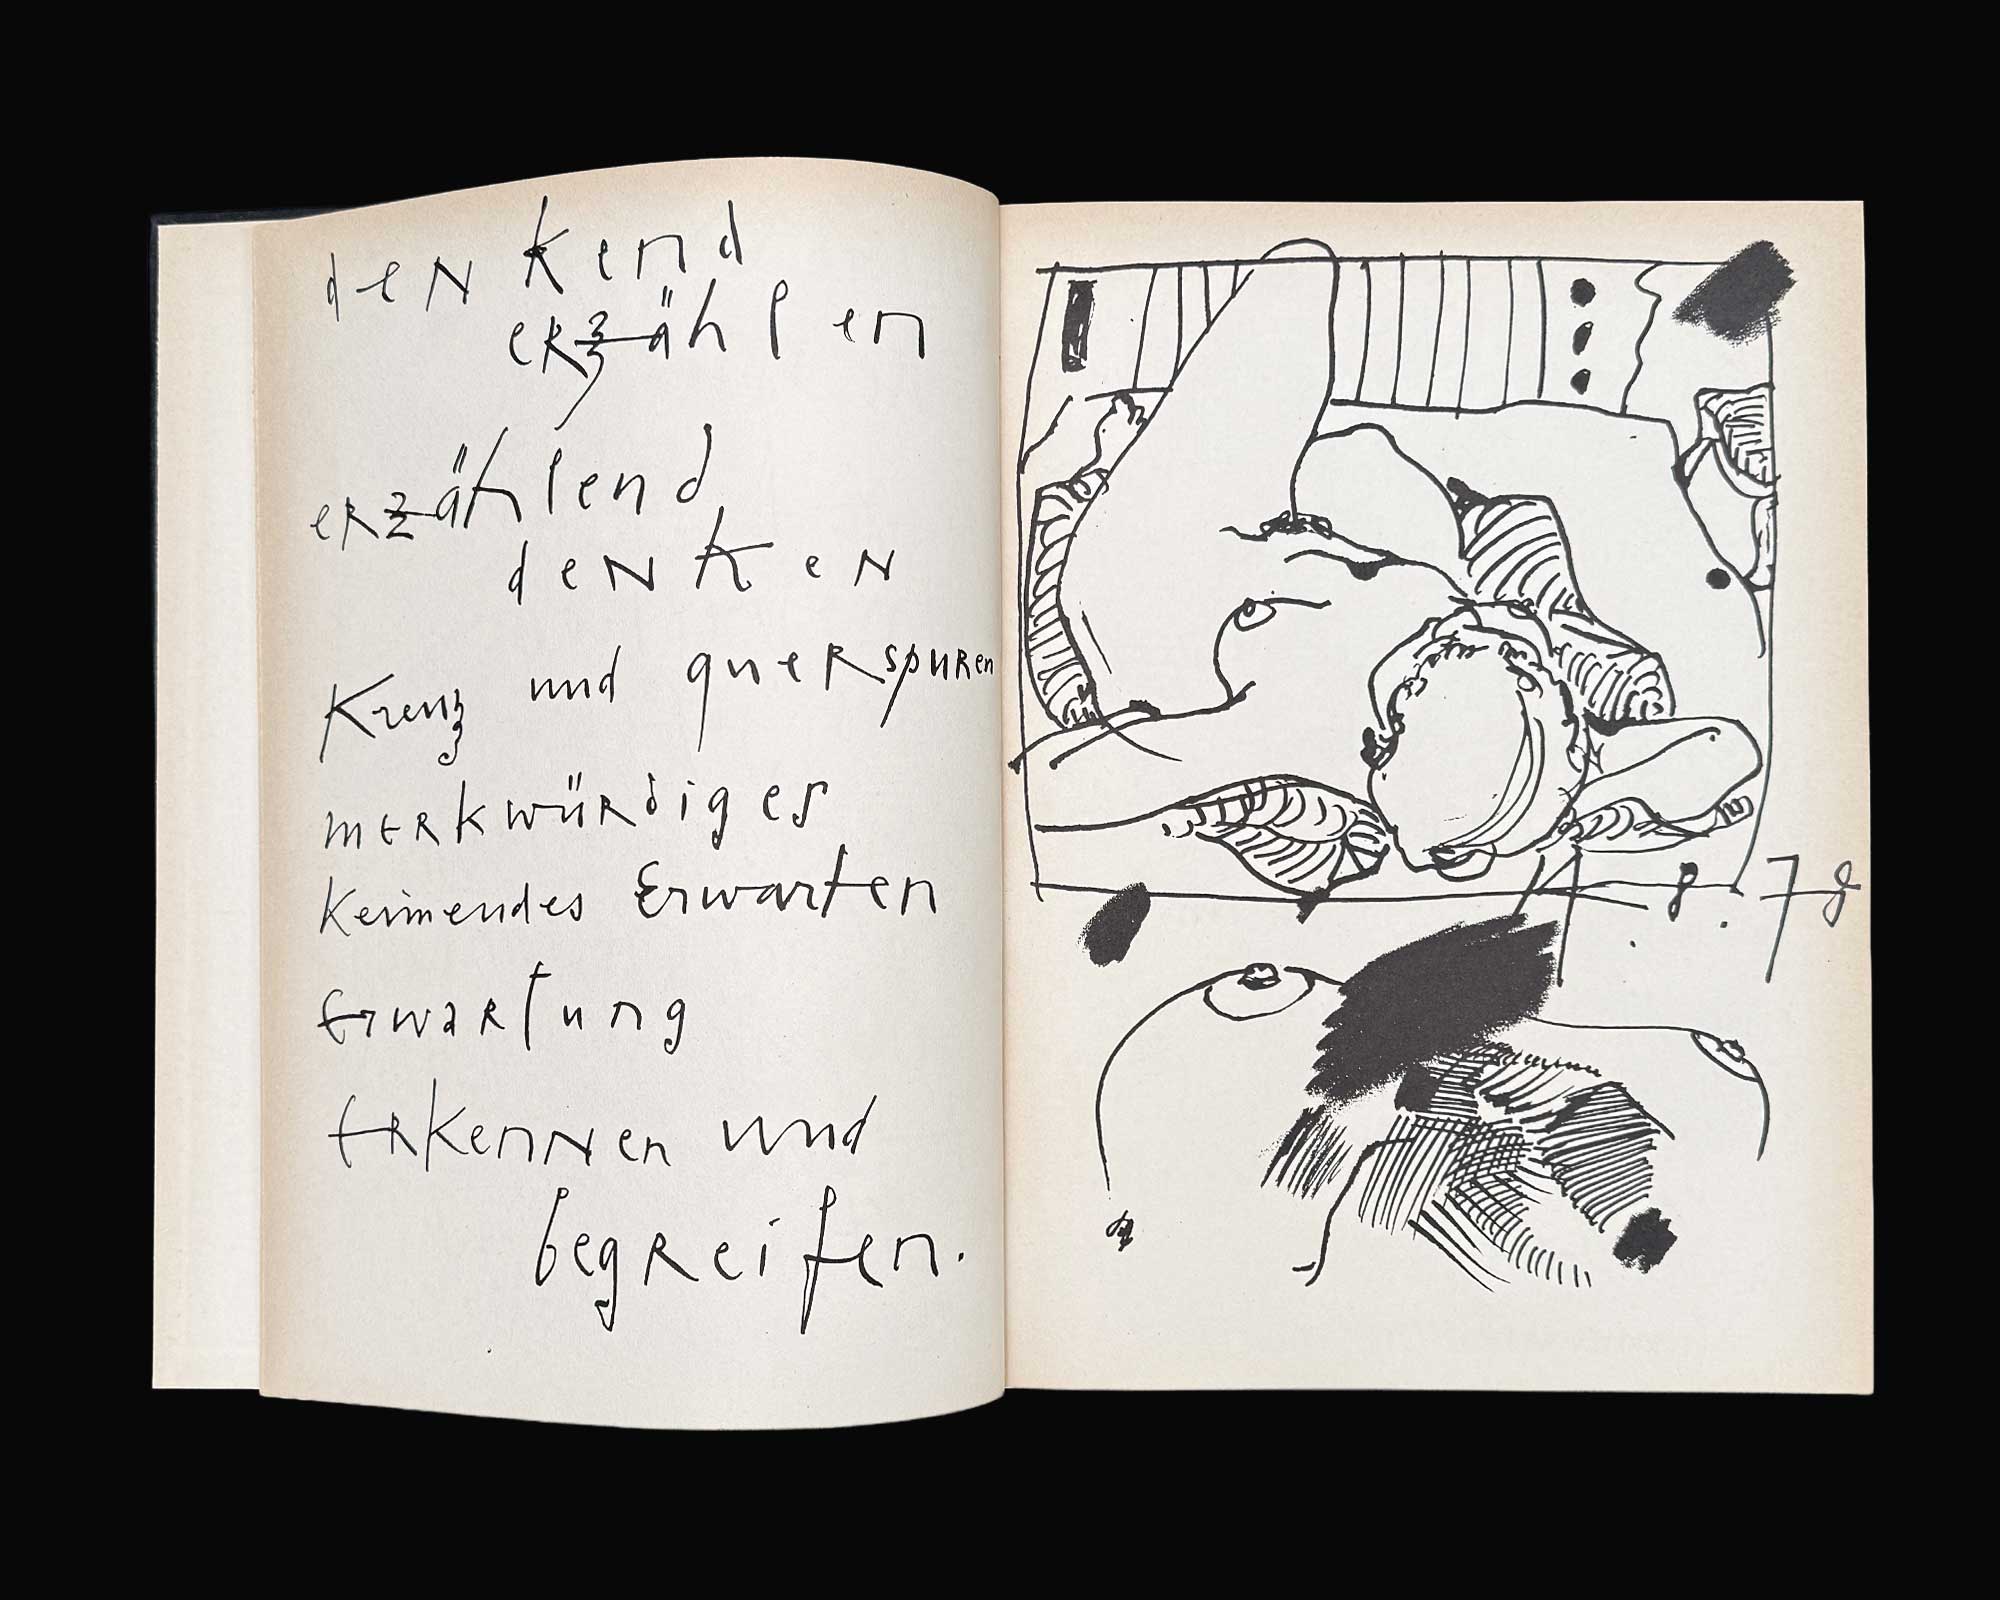 denkend
erzählen
erzählend
denken
Kreuz und querspuren
merkwürdiges
Keimendes Erwarten
Erwartung
Erkennen und
begreifen.
11.8.78